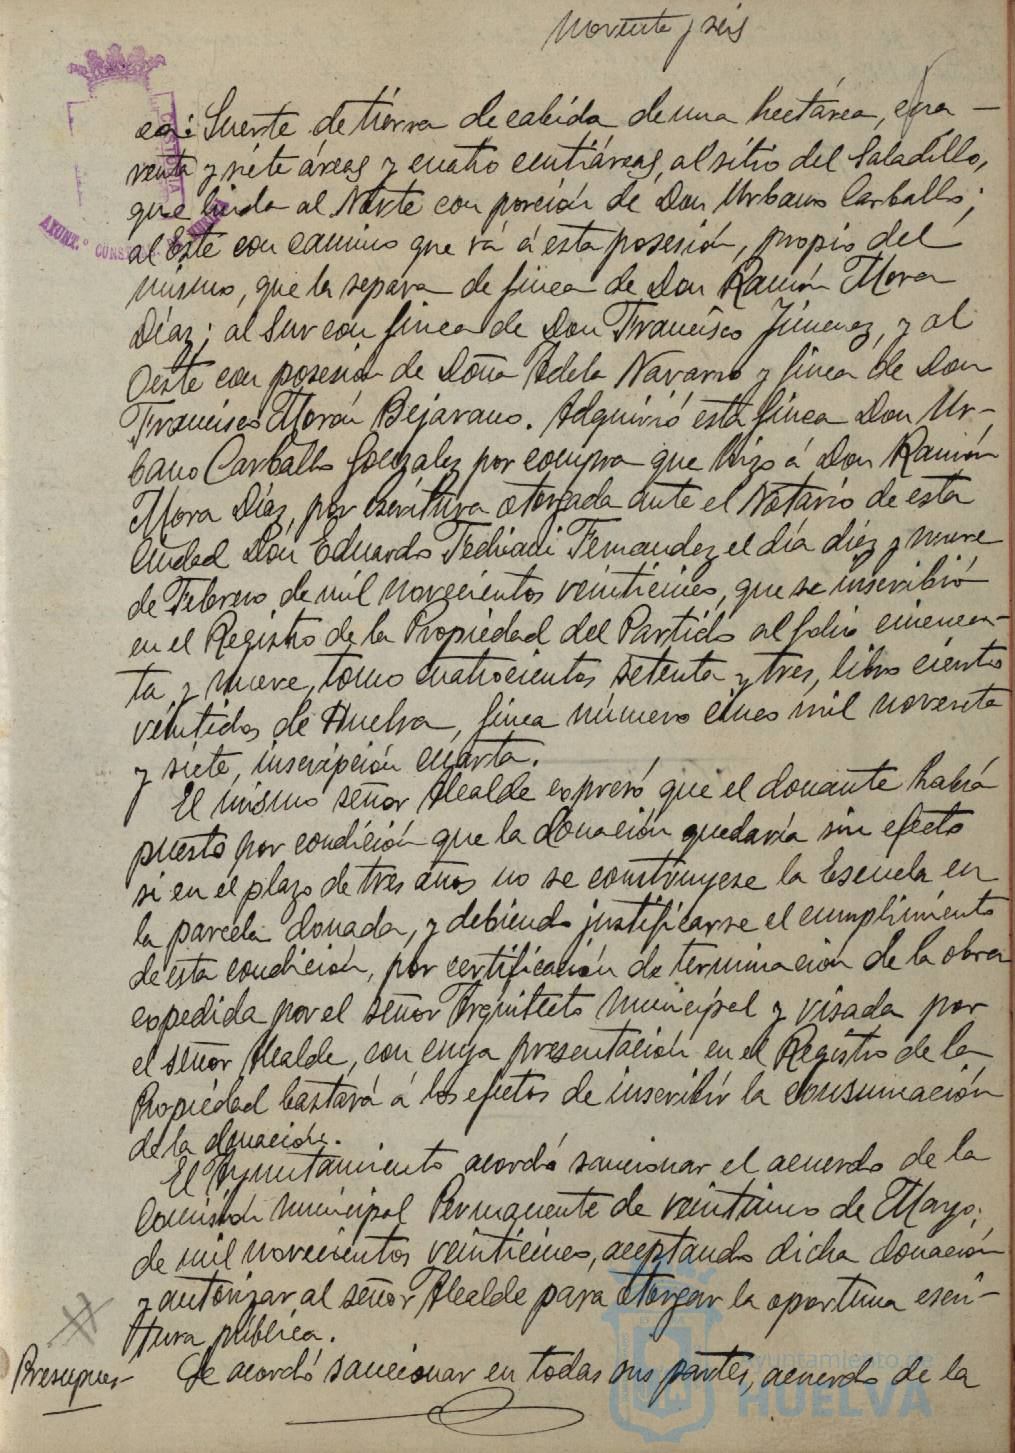 noventa y seis
ca: Suerte de tierra de cabida de una hectárea, cua-
renta y siete áreas y cuatro centiáreas, al sitio del Saladillo,
que linda al Norte con porción de Don Urbano Carballo;
al Este con camino que vá á esta posesión, propio del
mismo, que la separa de finca de Don Ramón Mora
Díaz; al Sur con finca de Don Francisco Jimenez, y al
Oeste con posesión de Doña Adela Navarro y finca de Don
Francisco Morán Bejarano. Adquirió esta finca Don Ur-
bano Carballo González por compra que hizo á Don Ramón
Mora Díaz, por escritura otorgada ante el Notario de esta
Ciudad Don Eduardo Fedriani Fernandez el día diez y nueve
de Febrero de mil novecientos veinticinco, que se inscribió
en el Registro de la Propiedad del Partido al folio cincuen-
ta y nueve, tomo cuatrocientos setenta y tres, libro ciento
veintidos de Huelva, finca número cinco mil noventa
y siete, inscripción cuarta.
El mismo señor Alcalde expresó que el donante había
puesto por condición que la donación quedaría sin efecto
si en el plazo de tres años no se construyese la Escuela en
la parcela donada, y debiendo justificarse el cumplimiento
de esta condición, por certificación de terminación de la obra
expedida por el señor Arquitecto municipal y visada por
el señor Alcalde, con cuya presentación en el Registro de la
Propiedad bastará á los efectos de inscribir la consumación
de la donación.
El Ayuntamiento acordó sancionar el acuerdo de la
Comisión municipal Permanente de veintiuno de Mayo,
de mil novecientos veinticinco, aceptando dicha donación
y autorizar al señor Alcalde para otorgar la oportuna escri-
tura pública.
Presupues-
Se acordó sancionar en todas sus partes, acuerdo de la
AYUNT.º CONST
Ayuntamiento de
HUELVA